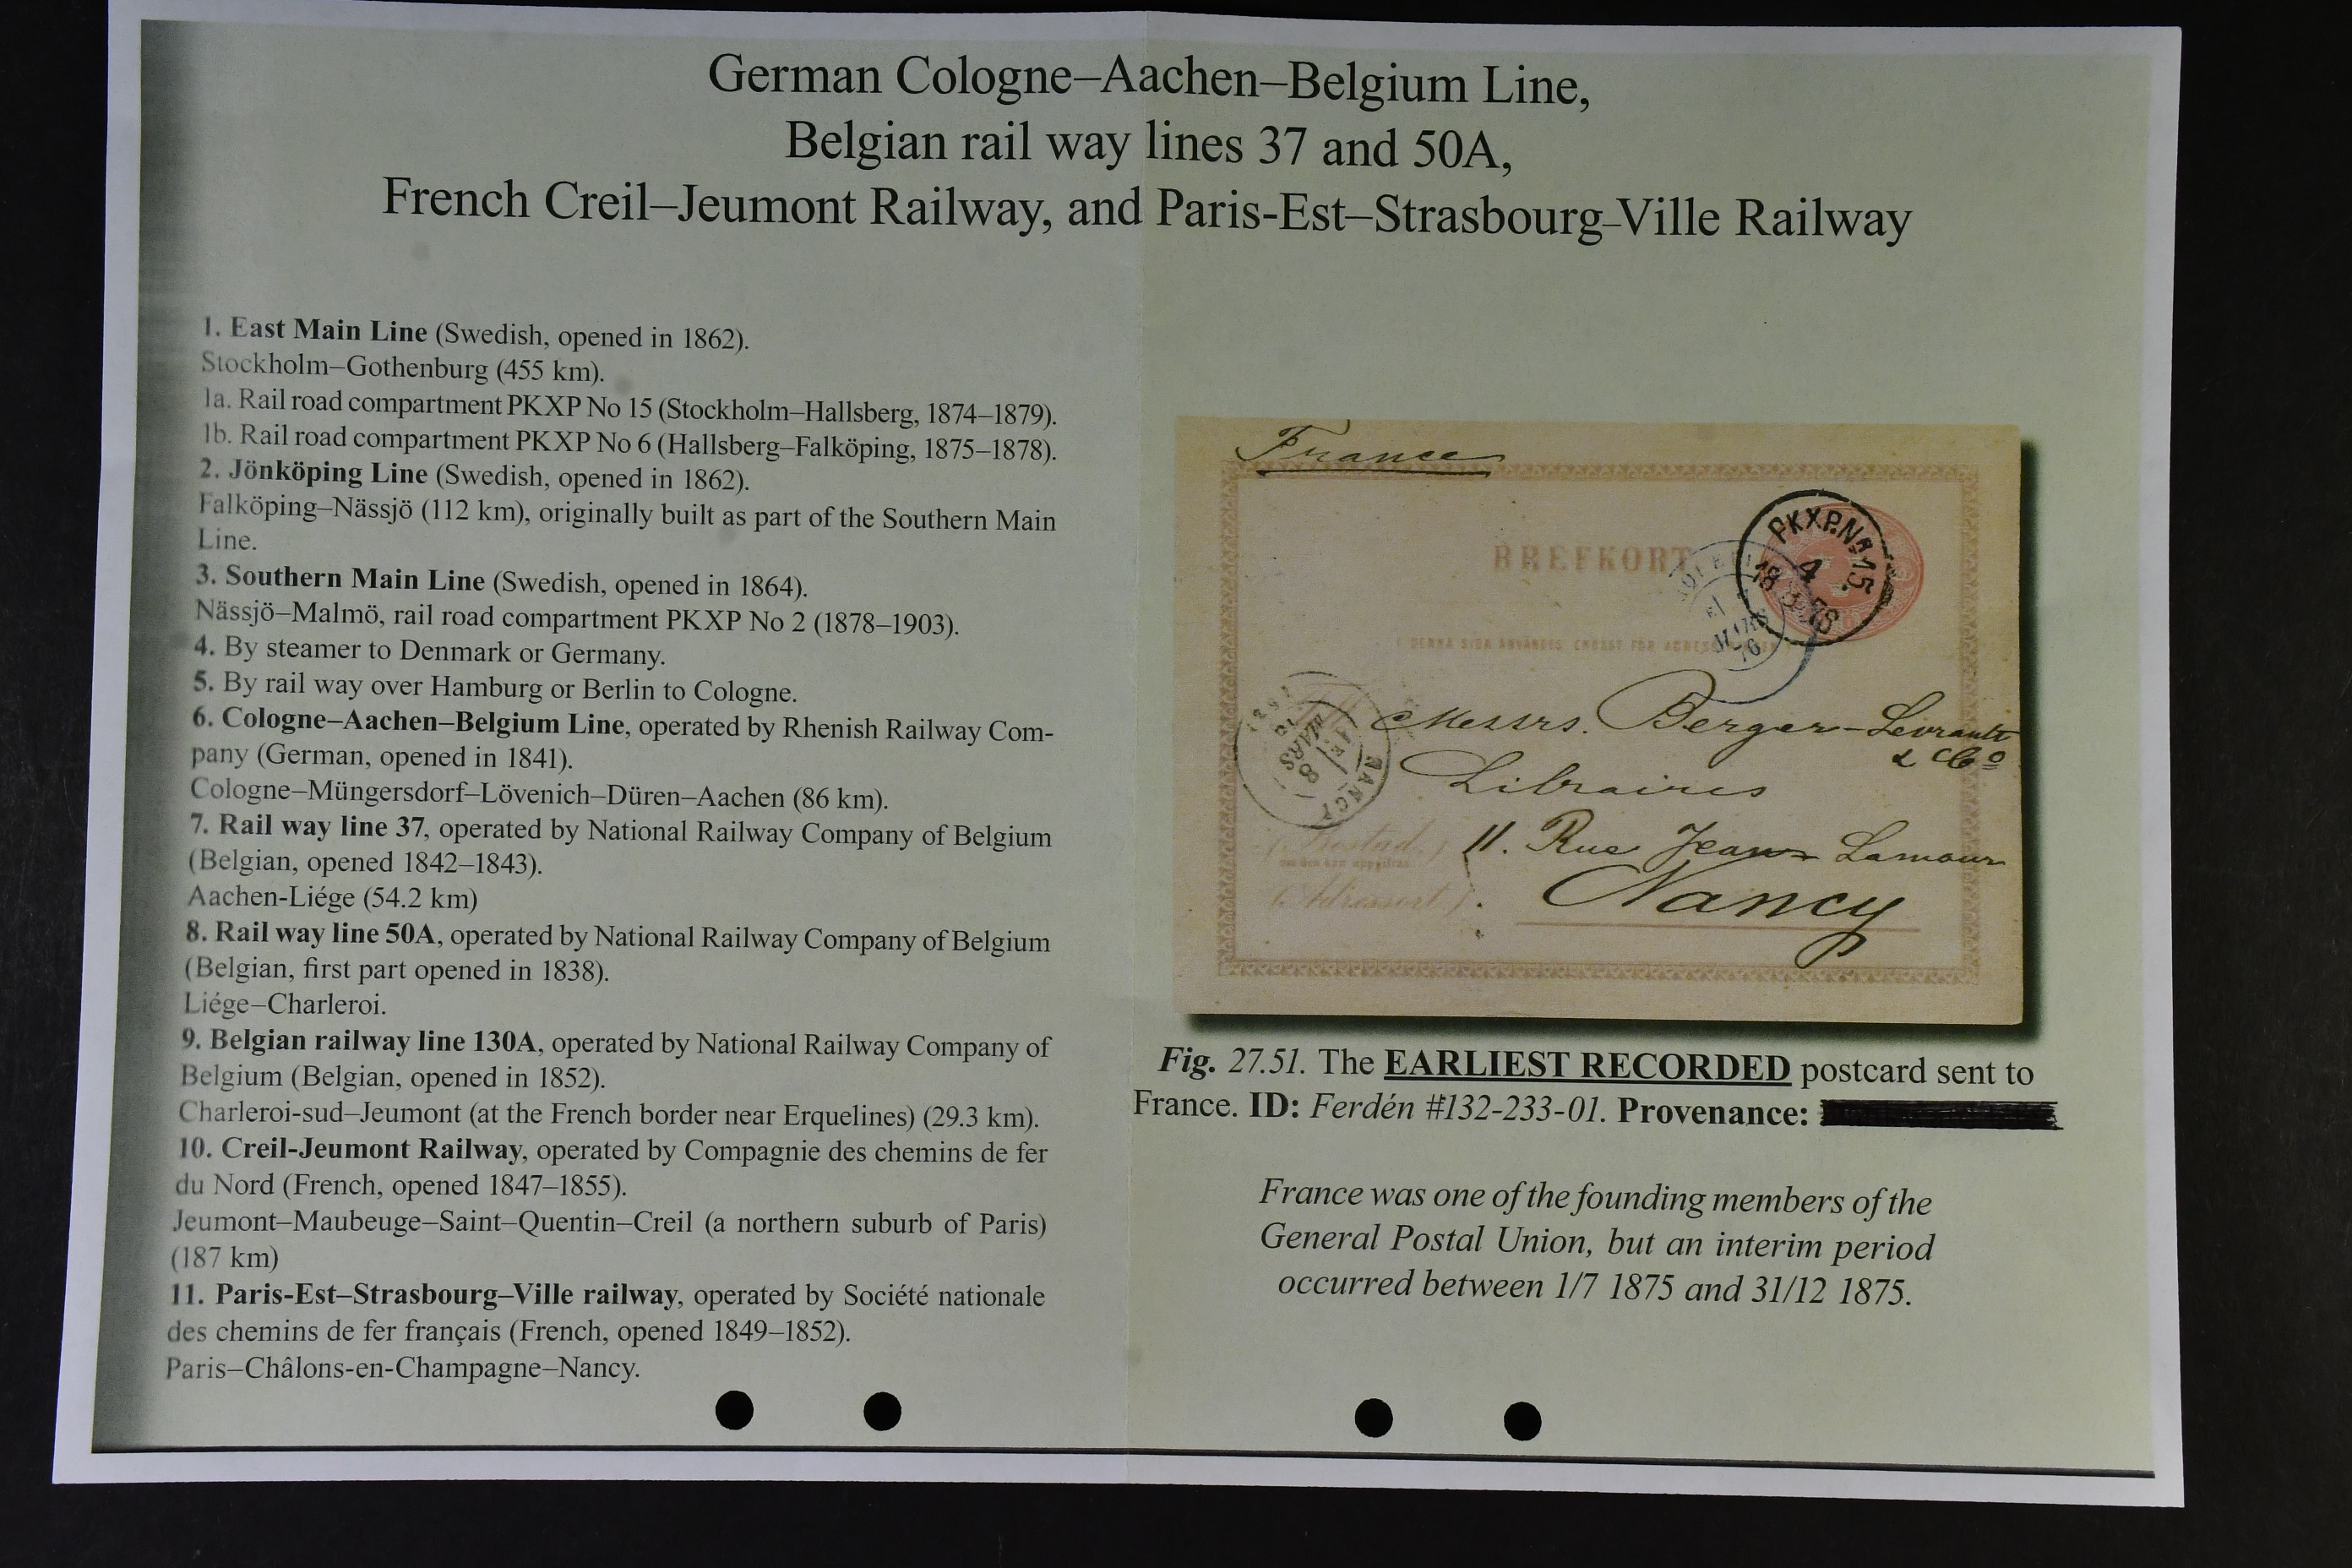 German Cologne–Aachen–Belgium Line,
Belgian rail way lines 37 and 50A,
French Creil–Jeumont Railway, and Paris-Est–Strasbourg–Ville Railway
1. East Main Line (Swedish, opened in 1862).
Stockholm–Gothenburg (455 km).
1a. Rail road compartment PKXP No 15 (Stockholm–Hallsberg, 1874–1879).
1b. Rail road compartment PKXP No 6 (Hallsberg–Falköping, 1875–1878).
2. Jönköping Line (Swedish, opened in 1862).
Falköping–Nässjö (112 km), originally built as part of the Southern Main
Line.
3. Southern Main Line (Swedish, opened in 1864).
Nässjö–Malmö, rail road compartment PKXP No 2 (1878–1903).
4. By steamer to Denmark or Germany.
5. By rail way over Hamburg or Berlin to Cologne.
6. Cologne–Aachen–Belgium Line, operated by Rhenish Railway Com-
pany (German, opened in 1841).
Cologne–Müngersdorf–Lövenich–Düren–Aachen (86 km).
7. Rail way line 37, operated by National Railway Company of Belgium
(Belgian, opened 1842–1843).
Aachen-Liége (54.2 km)
8. Rail way line 50A, operated by National Railway Company of Belgium
(Belgian, first part opened in 1838).
Liége–Charleroi.
9. Belgian railway line 130A, operated by National Railway Company of
Belgium (Belgian, opened in 1852).
Charleroi-sud–Jeumont (at the French border near Erquelines) (29.3 km).
10. Creil-Jeumont Railway, operated by Compagnie des chemins de fer
du Nord (French, opened 1847–1855).
Jeumont–Maubeuge–Saint–Quentin–Creil (a northern suburb of Paris)
(187 km)
11. Paris-Est–Strasbourg–Ville railway, operated by Société nationale
des chemins de fer français (French, opened 1849–1852).
Paris–Châlons-en-Champagne–Nancy.
France
BREFKORT
PKXP.No 15
4
18 3 76
MARS
76
(DENNA SIDA ANVÄNDES ENDAST FÖR ADRESSEN)
NANCY
8
MARS
Messrs. Berger-Levrault
& Co
Libraires
(Bostad.)
11. Rue Jean Lamour
(Adressort.)
Nancy
Fig. 27.51. The EARLIEST RECORDED postcard sent to
France. ID: Ferdén #132-233-01. Provenance:
France was one of the founding members of the
General Postal Union, but an interim period
occurred between 1/7 1875 and 31/12 1875.